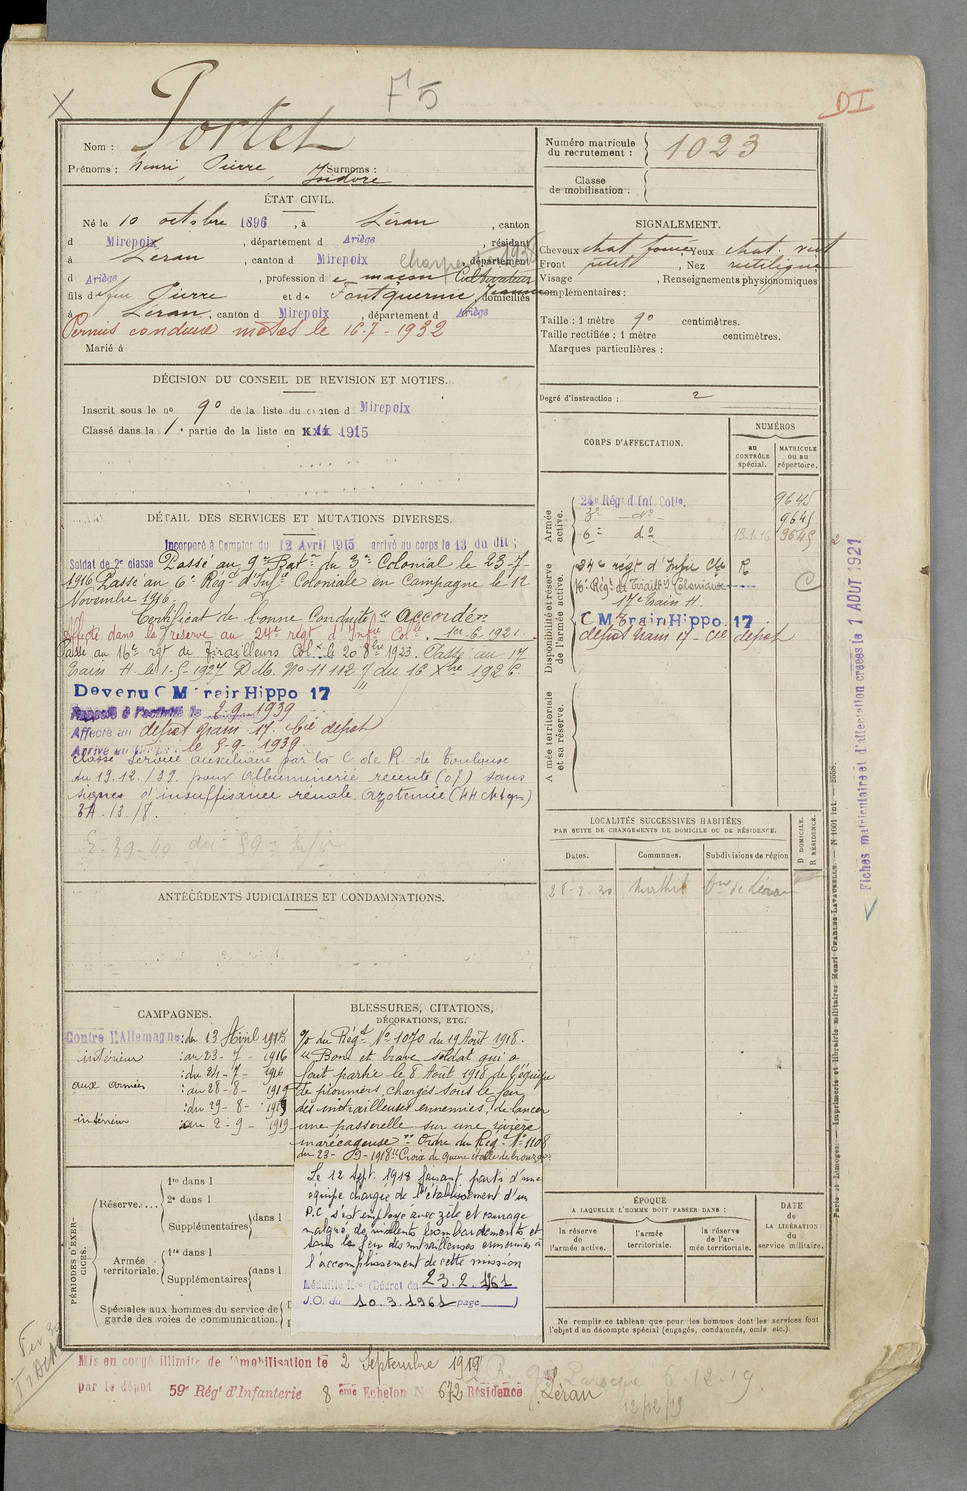 F 5
DI
X
Nom : Portet
Prénoms : Henri, Pierre, Isidore Surnoms :
Numéro matricule du recrutement : 1023
Classe de mobilisation :
ÉTAT CIVIL.
Né le 10 octobre 1896, à Léran, canton
d Mirepoix, département d Ariège, résidant
à Léran, canton d Mirepoix, département
d Ariège, profession de maçon Cultivateur
fils de feu Pierre et de Fontquernie Jeanne, domiciliés
à Léran, canton d Mirepoix, département d Ariège
Permis conduire motos le 16-7-1932
Marié à
SIGNALEMENT.
Cheveux chat foncé, Yeux chat. vert
Front petit, Nez rectiligne
Visage , Renseignements physionomiques
complémentaires :
Taille : 1 mètre 90 centimètres.
Taille rectifiée : 1 mètre centimètres.
Marques particulières :
Degré d'instruction : 2
DÉCISION DU CONSEIL DE REVISION ET MOTIFS.
Inscrit sous le no 90 de la liste du canton d Mirepoix
Classé dans la 1e partie de la liste en 1915
DÉTAIL DES SERVICES ET MUTATIONS DIVERSES.
Incorporé à Compter du 12 Avril 1915 arrivé au corps le 13 du dit ;
Soldat de 2e classe Passé au 9e Bat.on du 3e Colonial le 23-7-
1916 Passé au 6e Régt d'Infie Coloniale en campagne le 12
Novembre 1916.
Certificat de bonne Conduite "accordé"
Affecté dans la réserve au 24e régt d'Infie Colle 1er.6.1921
Passé au 16e rgt de tirailleurs Col. le 20 8bre 1923. Passé au 17
Train H. le 1-5-1927 D.M. No 11112 7/ du 16 Xbre 1926.
Devenu C M Train Hippo 17
Rappelé à l'activité le 2.9.1939
Affecté au dépôt train 17. Cie dépôt
Arrivé au Corps le 5-9-1939
Classé service auxiliaire par la C. de R. de Toulouse
du 19.12./39. pour albuminurie récente (of) sans
signes d'insuffisance rénale. Azotémie (44 ctgr)
3A.13./8.
CORPS D'AFFECTATION.
NUMÉROS
au CONTRÔLE spécial.
MATRICULE ou au répertoire.
Armée active.
24e Régt d'Inf. Colle. 9645
3e do 9645
6e do 9645
Disponibilité et réserve de l'armée active.
24e regt d'Infie Cle R
16e Régt de Tiraillrs Coloniaux
17e train H.
C M Train Hippo. 17
dépôt train 17 - Cie dépôt
Armée territoriale et sa réserve.
Fiches matriculaire et d'affectation créées le 1 AOUT 1921
LOCALITÉS SUCCESSIVES HABITÉES
PAR SUITE DE CHANGEMENTS DE DOMICILE OU DE RÉSIDENCE.
Dates. Communes. Subdivisions de région
D DOMICILE. R RÉSIDENCE.
ANTÉCÉDENTS JUDICIAIRES ET CONDAMNATIONS.
CAMPAGNES.
Contre l'Allemagne : du 13 Avril 1915
intérieur : au 23 - 7 - 1916
: du 24 - 7 - 1916
aux armées : au 28 - 8 - 1919
: du 29 - 8 - 1919
intérieur : au 2 - 9 - 1919
BLESSURES, CITATIONS,
DÉCORATIONS, ETC.
o/ du Régt No 1070 du 19 Août 1918.
"Bon et brave soldat qui a
fait partie le 8 Août 1918 de l'équipe
de pionniers, chargés sous le feu
des mitrailleuses ennemies, de lancer
une passerelle sur une rivière
marécageuse" Ordre du Régt No 1108
du 23-9-1918 "Croix de guerre étoile de bronze"
Le 12 Sept. 1918 faisant partie d'une
équipe chargée de l'établissement d'un
P.C. s'est employé avec zèle et courage
malgré de violents bombardements et
sous le feu des mitrailleuses ennemies à
l'accomplissement de cette mission
Médaille Mre (Décret du 23.2.1961
J.O. du 10.3.1961 page )
PÉRIODES D'EXERCICES.
Réserve....
1re dans l
2e dans l
Supplémentaires dans l
Armée territoriale.
1re dans l
Supplémentaires dans l
Spéciales aux hommes du service de garde des voies de communication.
ÉPOQUE
A LAQUELLE L'HOMME DOIT PASSER DANS :
la réserve de l'armée active.
l'armée territoriale.
la réserve de l'armée territoriale.
DATE de LA LIBÉRATION du service militaire.
Ne remplir ce tableau que pour les hommes dont les services font
l'objet d'un décompte spécial (engagés, condamnés, omis etc.).
Paris et Limoges. — Imprimerie et librairie militaires Henri CHARLES-LAVAUZELLE. — N° 1001 int.
Mis en congé illimité de démobilisation le 2 Septembre 1919
par le dépôt 59e Régt d'Infanterie 8 ème Echelon N 672 Résidence Léran
12/12/19